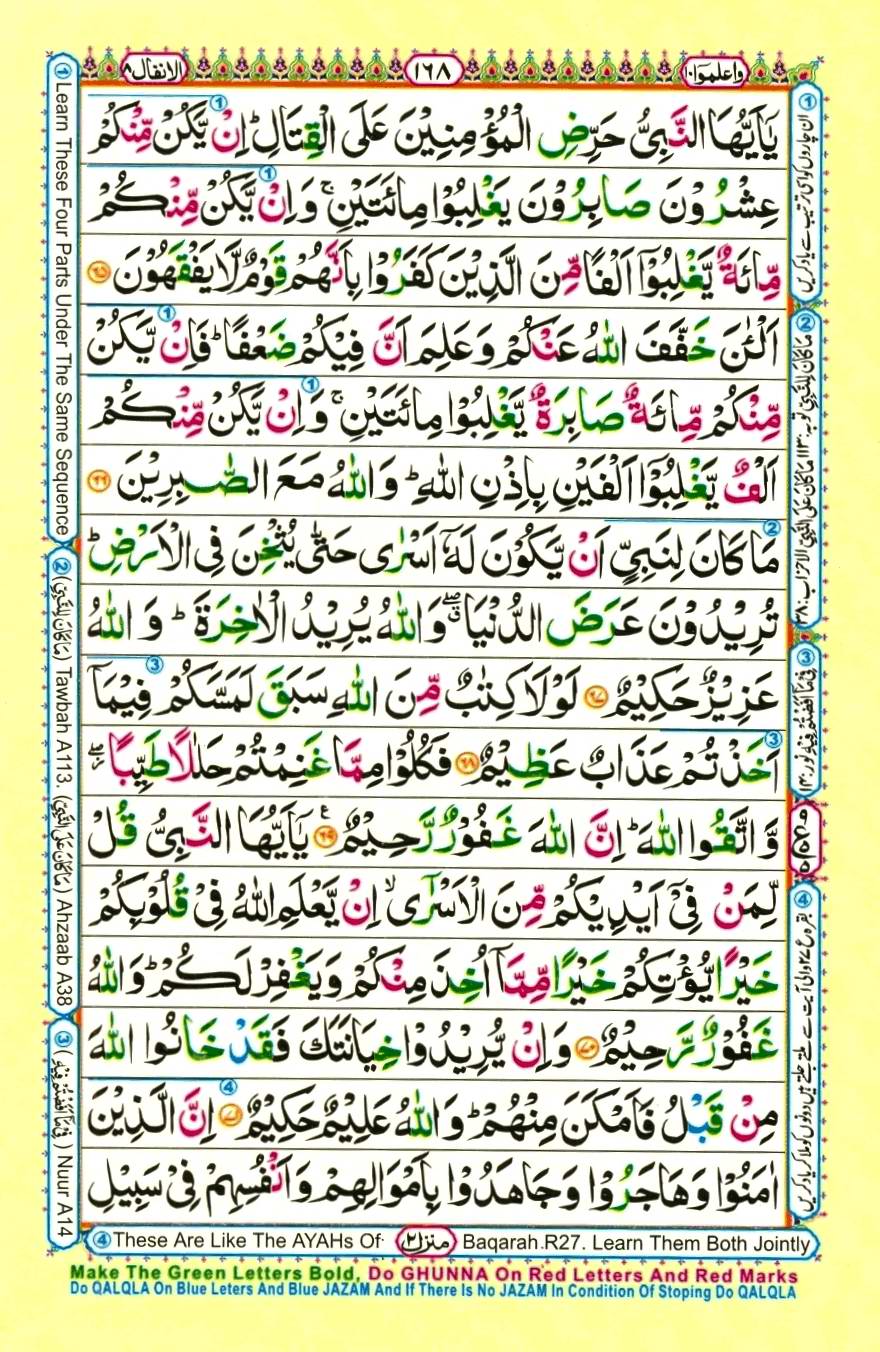 الانفال ۸
۱۶۸
واعلموٓا ۱۰
يٰۤاَيُّهَا النَّبِىُّ حَرِّضِ الْمُؤْمِنِيْنَ عَلَى الْقِتَالِ ؕ اِنْ يَّكُنْ مِّنْكُمْ
عِشْرُوْنَ صَابِرُوْنَ يَغْلِبُوْا مِائَتَيْنِ ۚ وَ اِنْ يَّكُنْ مِّنْكُمْ
مِّائَةٌ يَّغْلِبُوْۤا اَلْفًا مِّنَ الَّذِيْنَ كَفَرُوْا بِاَنَّهُمْ قَوْمٌ لَّا يَفْقَهُوْنَ ۶۵
اَلْـٰٔنَ خَفَّفَ اللّٰهُ عَنْكُمْ وَ عَلِمَ اَنَّ فِيْكُمْ ضَعْفًا ؕ فَاِنْ يَّكُنْ
مِّنْكُمْ مِّائَةٌ صَابِرَةٌ يَّغْلِبُوْا مِائَتَيْنِ ۚ وَ اِنْ يَّكُنْ مِّنْكُمْ
اَلْفٌ يَّغْلِبُوْۤا اَلْفَيْنِ بِاِذْنِ اللّٰهِ ؕ وَ اللّٰهُ مَعَ الصّٰبِرِيْنَ ۶۶
مَا كَانَ لِنَبِىٍّ اَنْ يَّكُوْنَ لَهٗۤ اَسْرٰى حَتّٰى يُثْخِنَ فِى الْاَرْضِ ؕ
تُرِيْدُوْنَ عَرَضَ الدُّنْيَا ۖۗ وَ اللّٰهُ يُرِيْدُ الْاٰخِرَةَ ؕ وَ اللّٰهُ
عَزِيْزٌ حَكِيْمٌ ۶۷ لَوْلَا كِتٰبٌ مِّنَ اللّٰهِ سَبَقَ لَمَسَّكُمْ فِيْمَاۤ
اَخَذْتُمْ عَذَابٌ عَظِيْمٌ ۶۸ فَكُلُوْا مِمَّا غَنِمْتُمْ حَلٰلًا طَيِّبًا ۖ
وَّ اتَّقُوا اللّٰهَ ؕ اِنَّ اللّٰهَ غَفُوْرٌ رَّحِيْمٌ ۶۹ يٰۤاَيُّهَا النَّبِىُّ قُلْ
لِّمَنْ فِىْۤ اَيْدِيْكُمْ مِّنَ الْاَسْرٰٓى ۙ اِنْ يَّعْلَمِ اللّٰهُ فِىْ قُلُوْبِكُمْ
خَيْرًا يُّؤْتِكُمْ خَيْرًا مِّمَّاۤ اُخِذَ مِنْكُمْ وَ يَغْفِرْ لَكُمْ ؕ وَ اللّٰهُ
غَفُوْرٌ رَّحِيْمٌ ۷۰ وَ اِنْ يُّرِيْدُوْا خِيَانَتَكَ فَقَدْ خَانُوا اللّٰهَ
مِنْ قَبْلُ فَاَمْكَنَ مِنْهُمْ ؕ وَ اللّٰهُ عَلِيْمٌ حَكِيْمٌ ۷۱ اِنَّ الَّذِيْنَ
اٰمَنُوْا وَ هَاجَرُوْا وَ جَاهَدُوْا بِاَمْوَالِهِمْ وَ اَنْفُسِهِمْ فِىْ سَبِيْلِ
① ان چاروں کو اسی ترتیب سے یاد کریں
② مَا كَانَ لِلنَّبِيِّ توبہ: ۱۱۳، مَا كَانَ عَلَى النَّبِيِّ الاحزاب: ۳۸
③ فِيْ مَاۤ اَفَضْتُمْ فِيْهِ نور: ۱۴
① Learn These Four Parts Under The Same Sequence
② (مَا كَانَ لِلنَّبِيِّ) Tawbah A113. (مَا كَانَ عَلَى النَّبِيِّ) Ahzaab A38
③ (فِيْ مَاۤ اَفَضْتُمْ فِيْهِ) Nuur A14
④ These Are Like The AYAHs Of منزل ۲ Baqarah.R27. Learn Them Both Jointly
Make The Green Letters Bold, Do GHUNNA On Red Letters And Red Marks
Do QALQLA On Blue Leters And Blue JAZAM And If There Is No JAZAM In Condition Of Stoping Do QALQLA